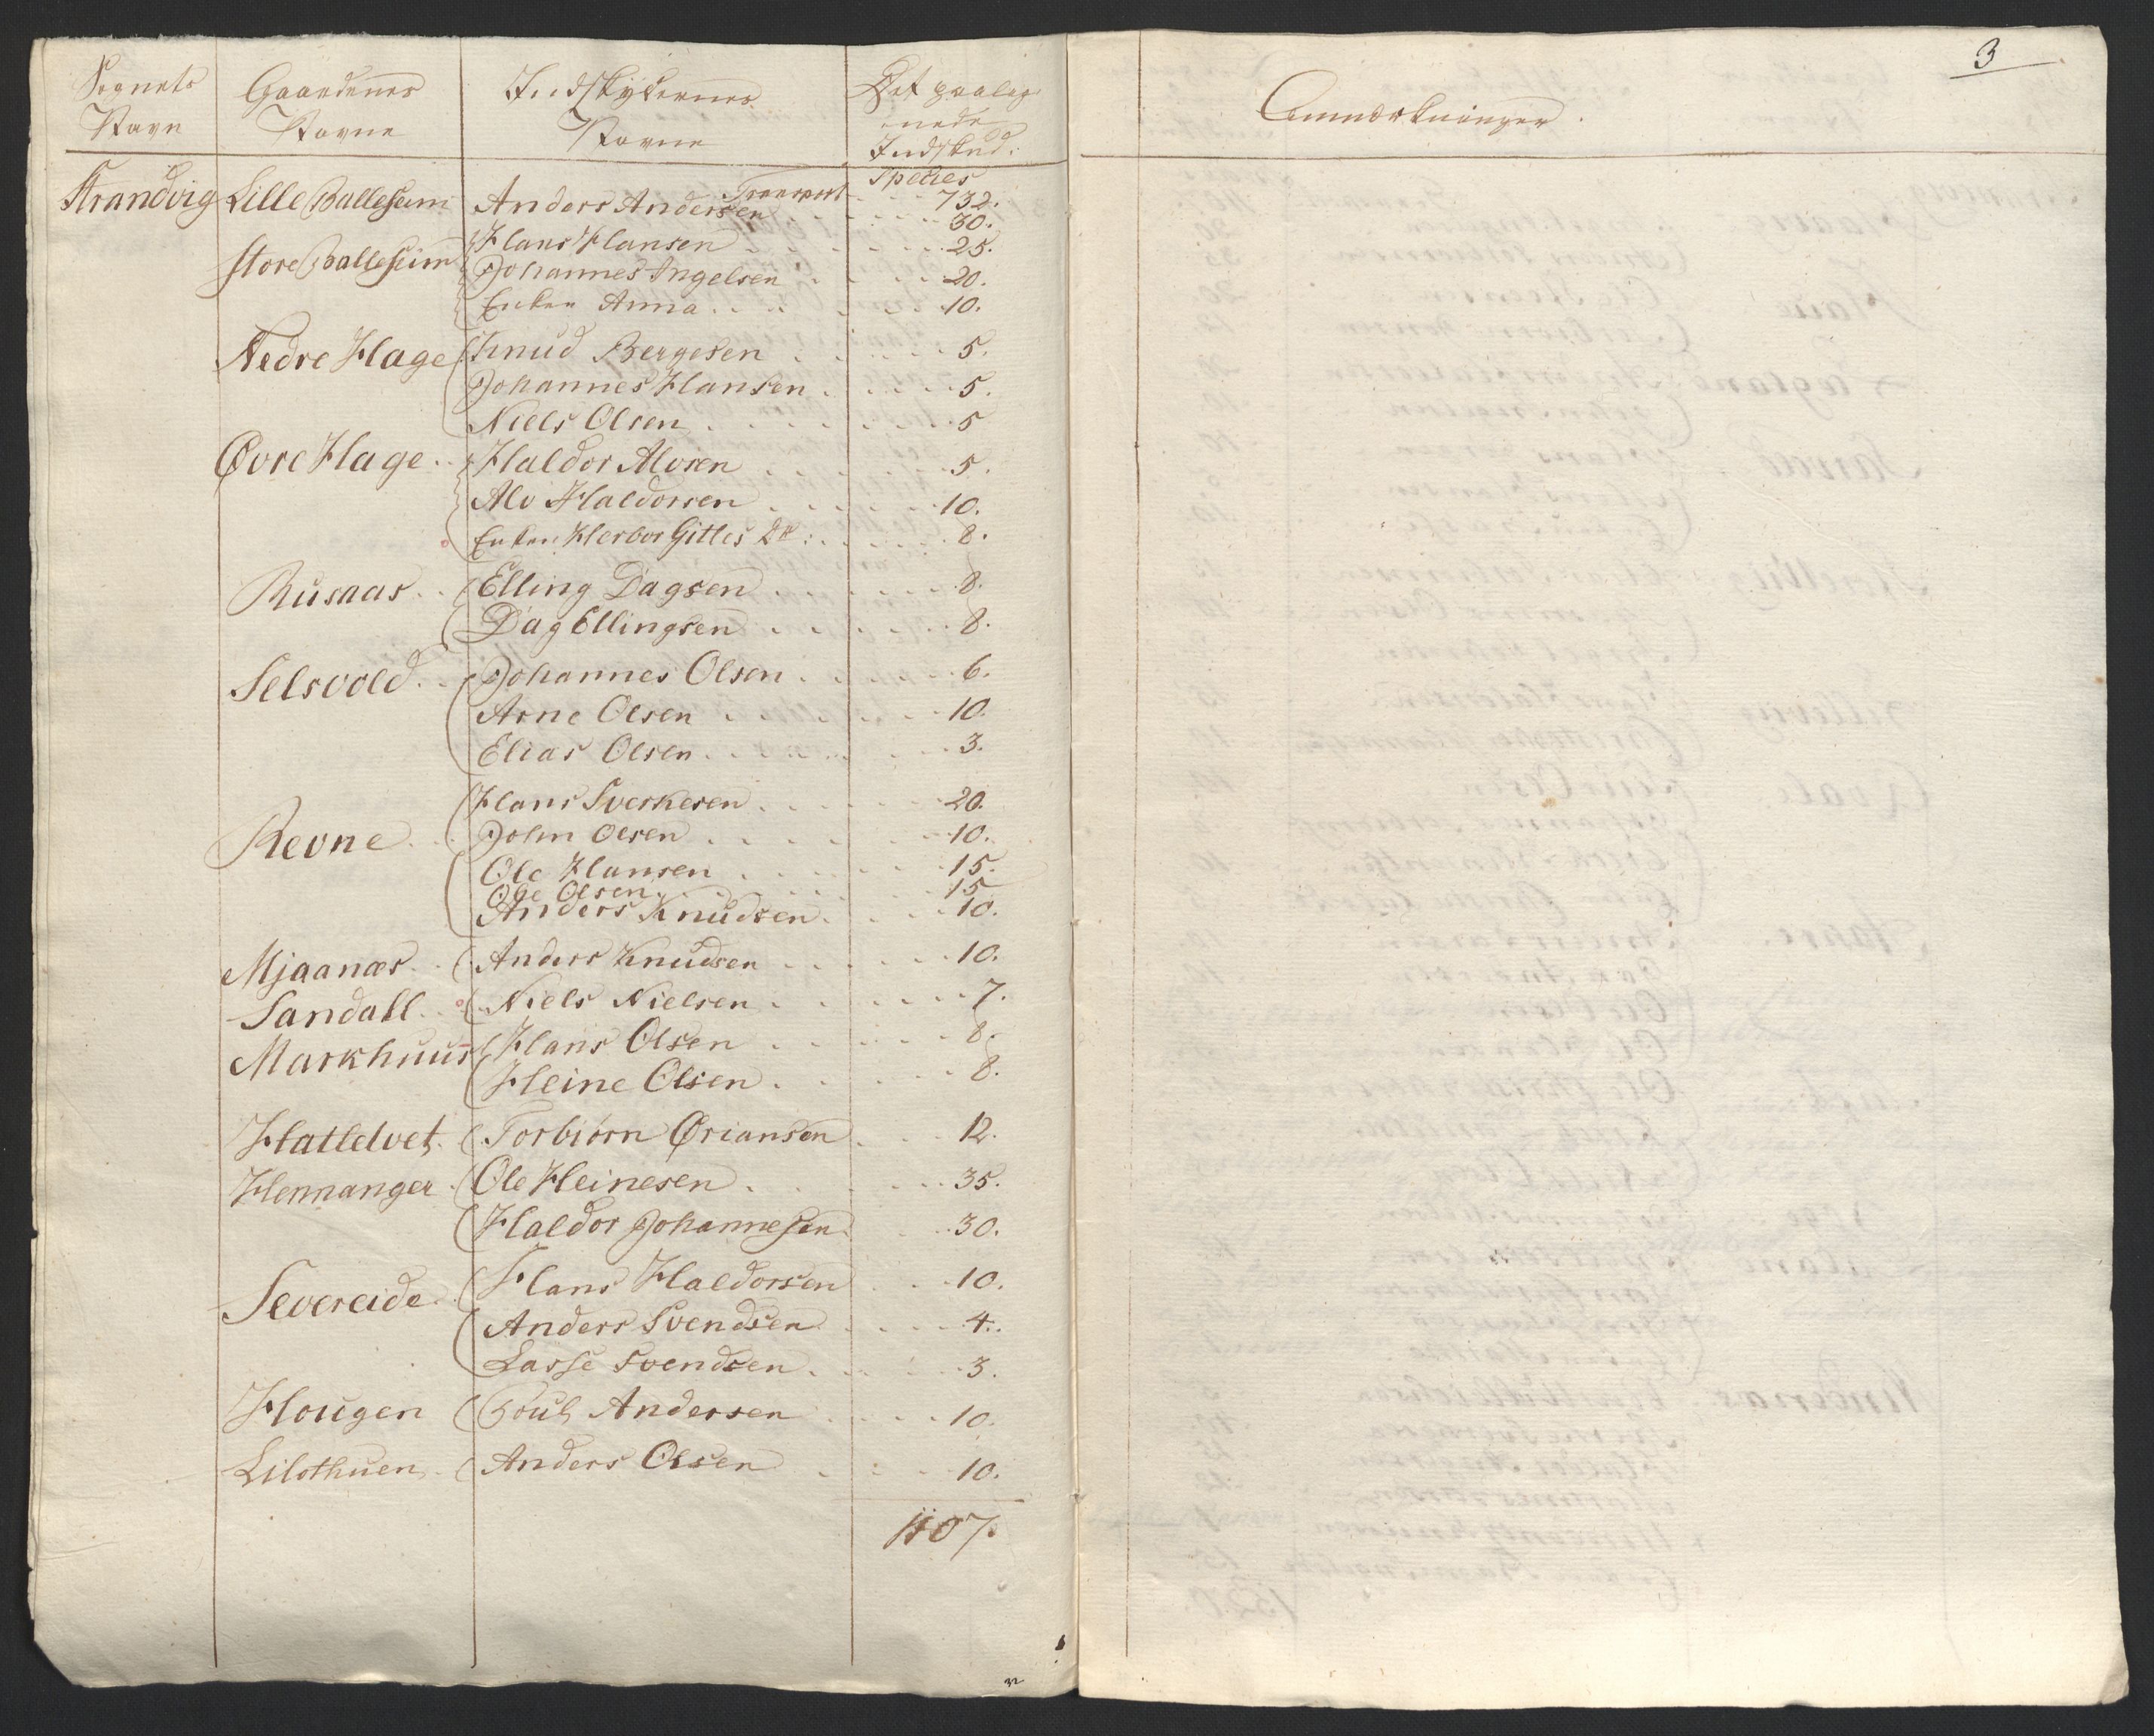 Sognets Navn | Gaardenes Navne | Indskydernes Navne | Det paalagnede Indskud.
Species
Transport 732.
Strandvig Lille Balleseim Anders Andersen 30.
Store Balleseim Hans Hansen 25.
Johannes Ingelsen 20.
Enken Anna 10.
Nedre Hage Knud Bergesen 5.
Johannes Hansen 5.
Niels Olsen 5
Øvre Hage Haldor Alvsen 5.
Alv Haldorsen 10.
Enken Herbor Gitles Dr: 8.
Rusaas Elling Dagsen 8.
Dag Ellingsen 8.
Selsvold Johannes Olsen 6.
Arne Olsen 10.
Elias Olsen 3.
Hans Sverkesen 20.
Revne John Olsen 10.
Ole Hansen 15.
Ole Olsen 15
Anders Knudsen 10.
Mjaanæs Anders Knudsen 10.
Sandall Niels Nielsen 7.
Markhuus Hans Olsen 8.
Heine Olsen 8.
Hatlelvet Torbiørn Øriansen 12.
Hennanger Ole Heinesen 35.
Haldor Johannesen 30.
Severeide Hans Haldorsen 10.
Anders Svendsen 4.
Lasse Svendsen 3.
Hougen Poul Andersen 10.
Lilothuen Anders Olsen 10.
1107.
3
Anmærkninger.